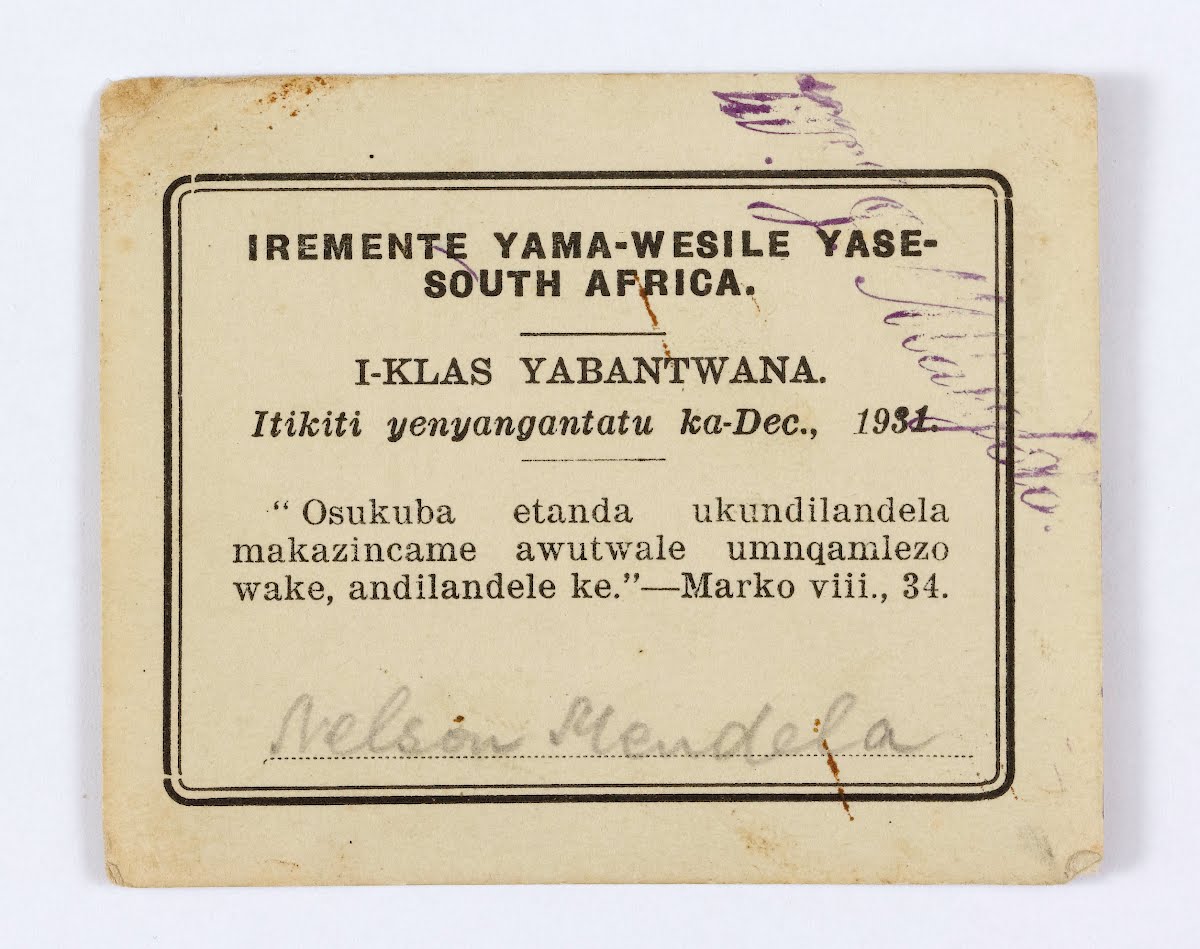 IREMENTE YAMA-WESILE YASE-
SOUTH AFRICA.
I-KLAS YABANTWANA.
Itikiti yenyangantatu ka-Dec., 1931.
“Osukuba etanda ukundilandela
makazincame awutwale umnqamlezo
wake, andilandele ke.”—Marko viii., 34.
Nelson Mendela